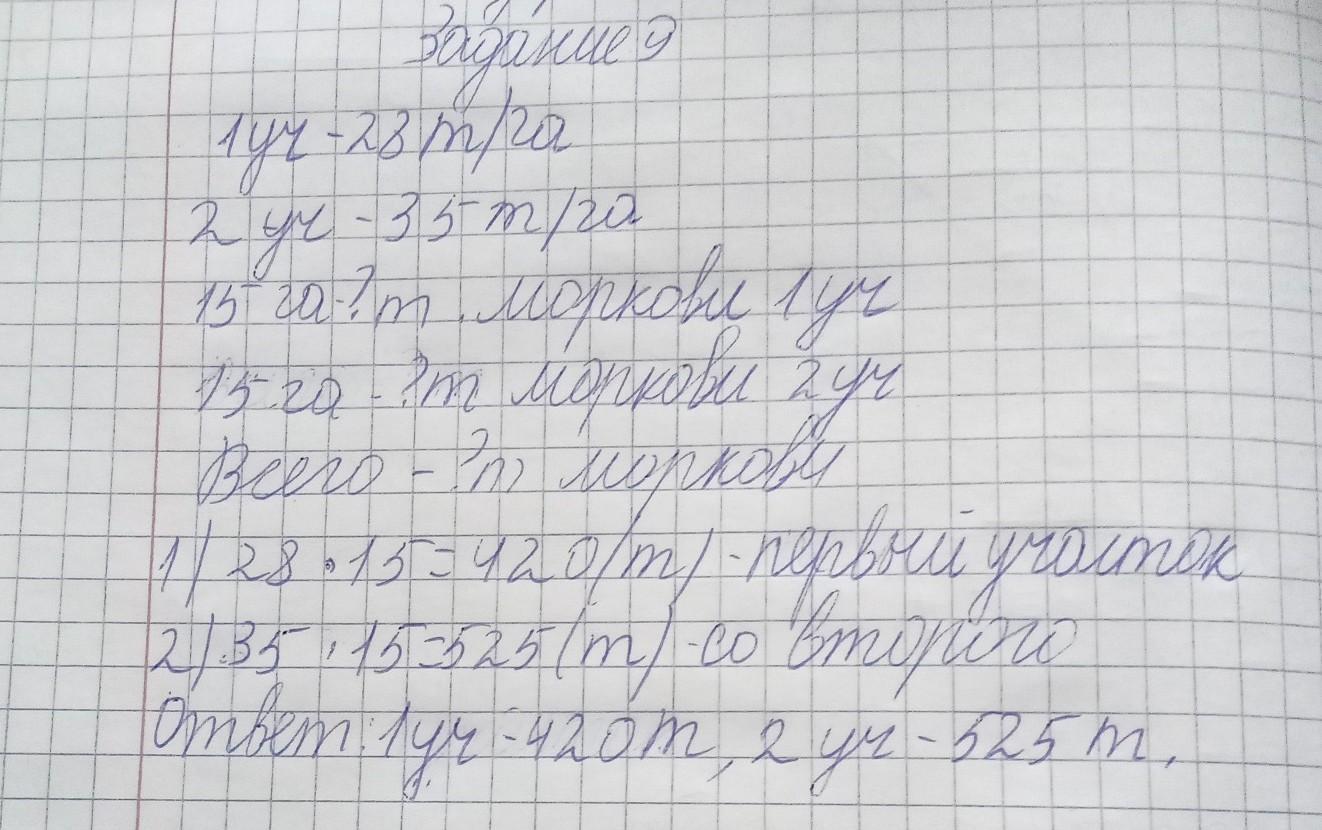 Задание 9
1уч - 28 т/га
2 уч - 35 т/га
15 га - ? т моркови 1 уч
15 га - ? т моркови 2 уч
Всего - ? т моркови
1) 28 · 15 = 420 (т) - первый участок
2) 35 · 15 = 525 (т) - со второго
Ответ: 1 уч - 420 т, 2 уч - 525 т.